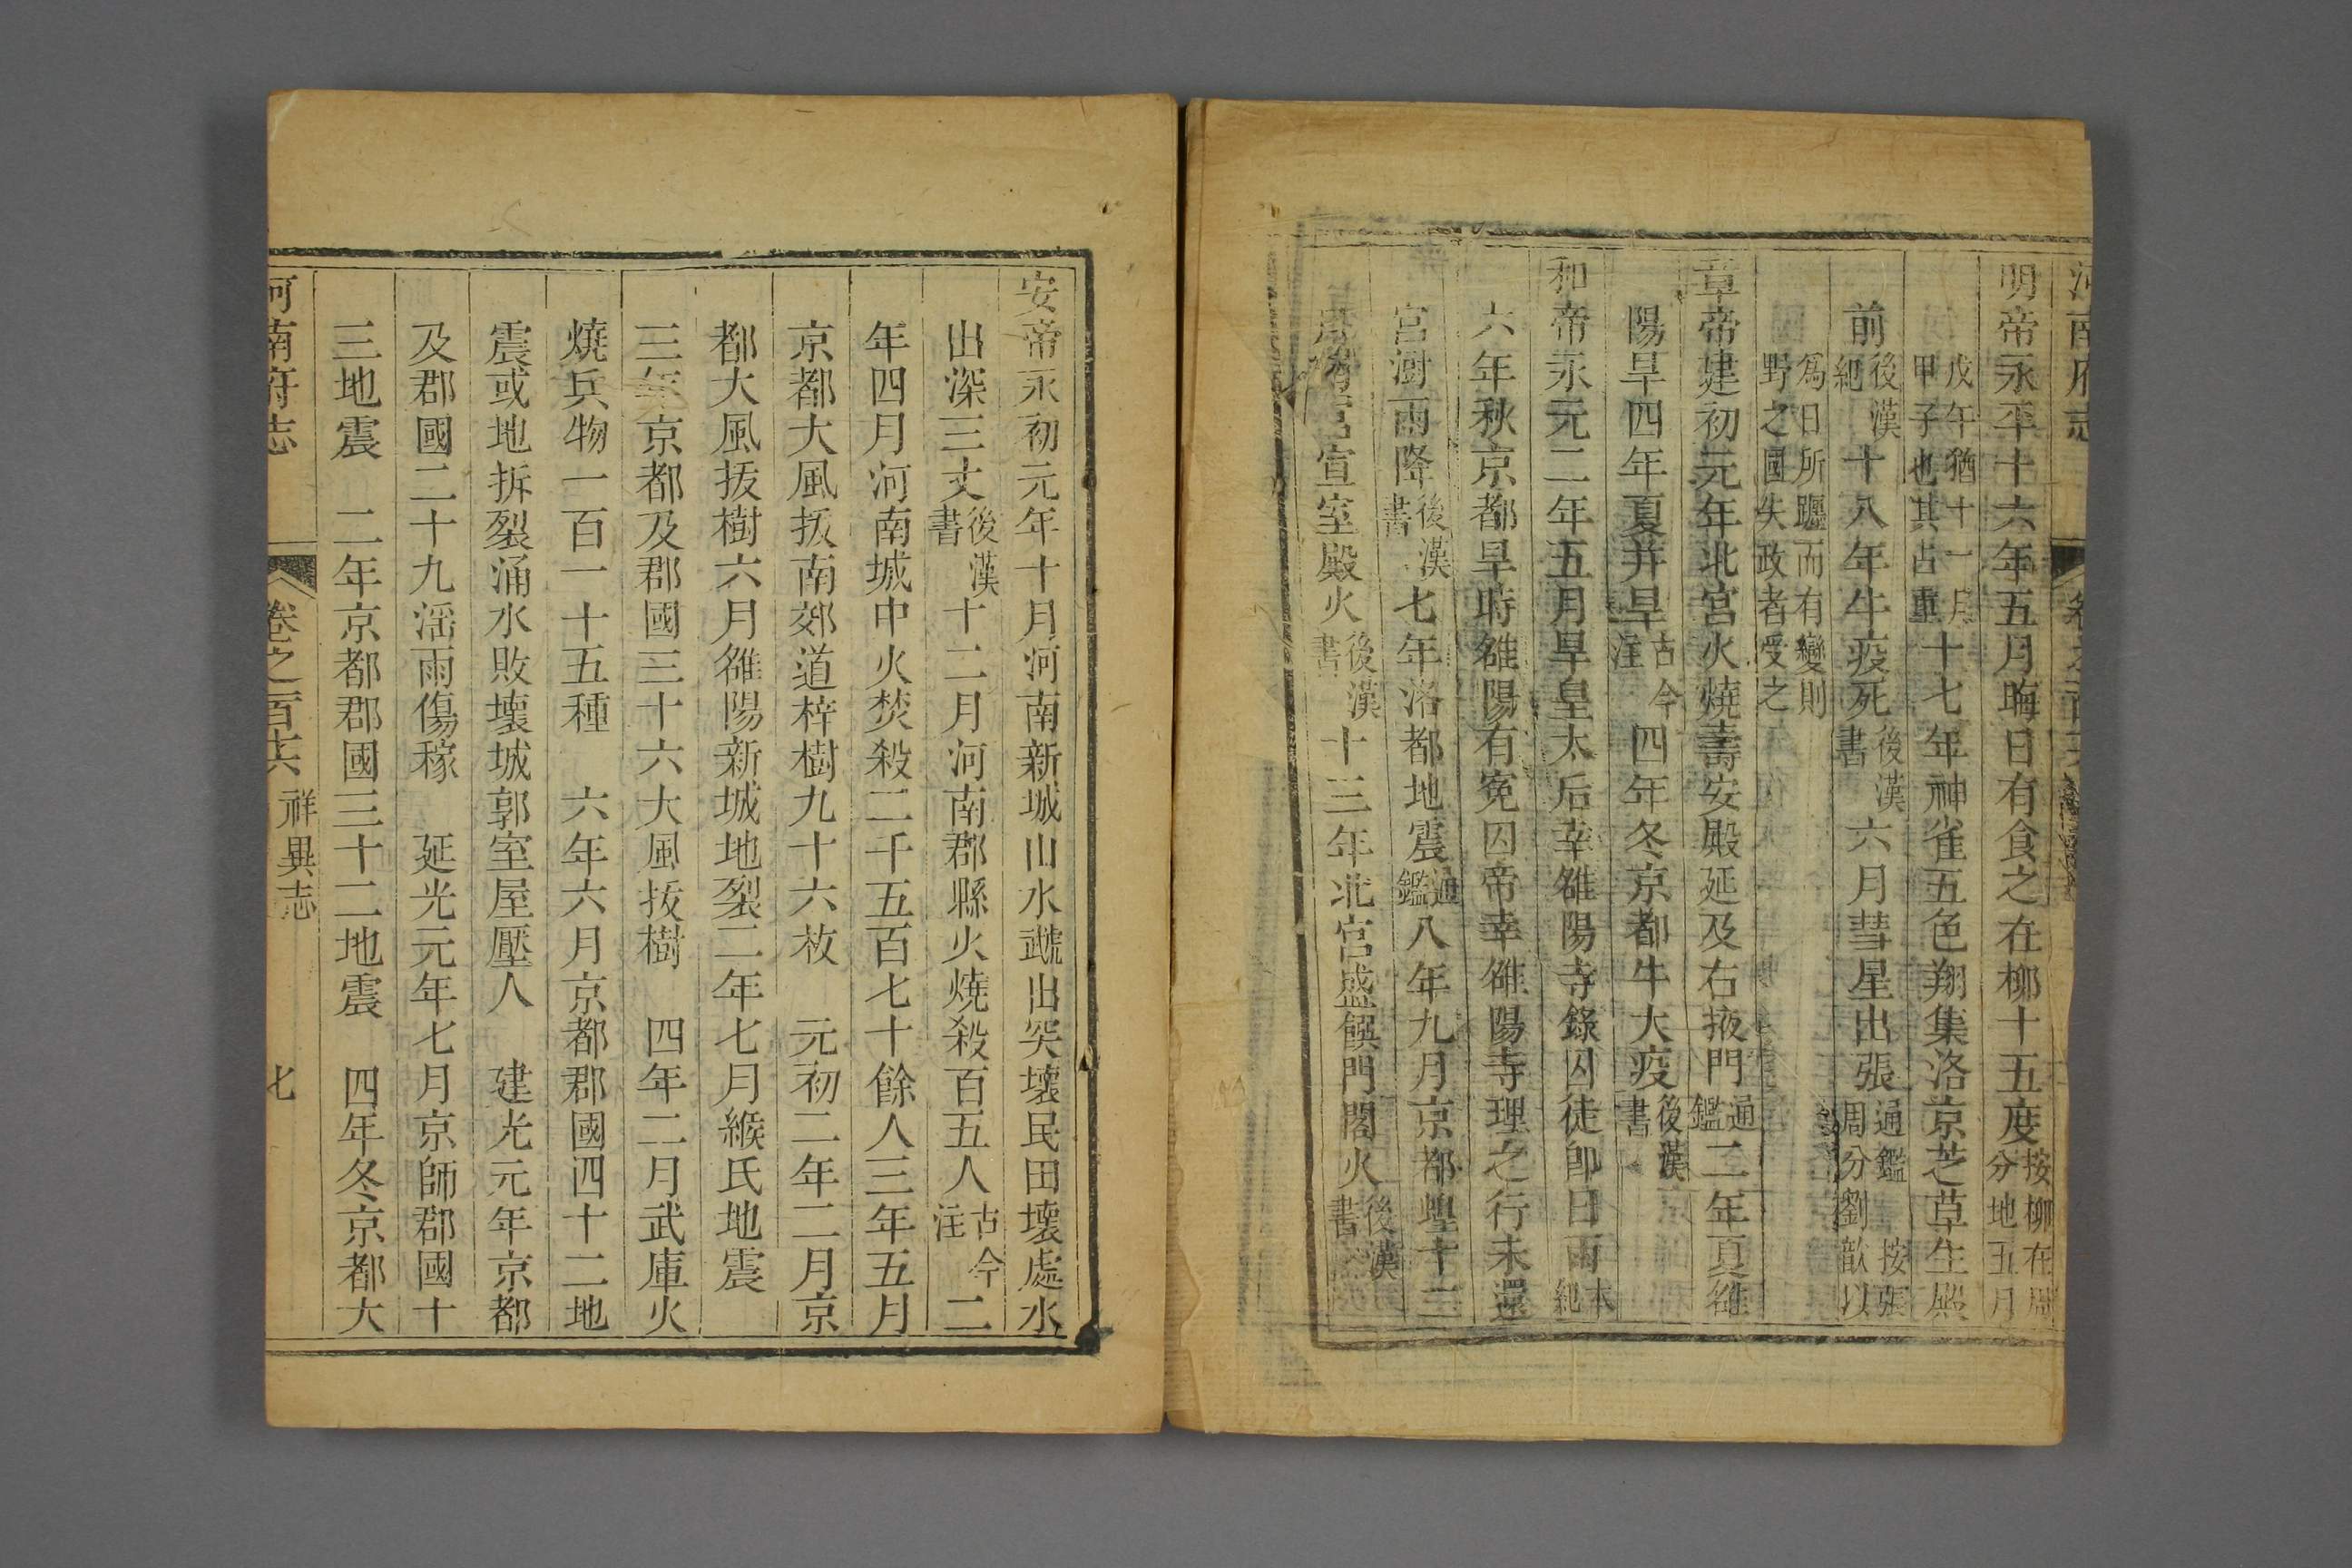 河南府志
明帝永平十六年五月晦日有食之在柳十五度按柳在周分地五月
戊午猶十一月甲子也其占重十七年神雀五色翔集洛京芝草生殿
前後漢紀十八年牛疫死後漢書六月彗星出張通鑑 按張周分劉歆以
為日所躔而有變則野之國失政者受之
章帝建初元年北宮火燒壽安殿延及右掖門通鑑二年夏雒
陽旱四年夏并旱古今注四年冬京都牛大疫後漢書
和帝永元二年五月旱皇太后幸雒陽寺錄囚徒即日雨本紀
六年秋京都旱時雒陽有寃囚帝幸雒陽寺理之行未還
宮澍雨降後漢書七年洛都地震通鑑八年九月京都蝗十二
宮宣室殿火後漢書十三年北宮盛饌門閣火後漢書
安帝永初元年十月河南新城山水虣出突壞民田壞處水
出深三丈後漢書十二月河南郡縣火燒殺百五人古今注二
年四月河南城中火焚殺二千五百七十餘人三年五月
京都大風拔南郊道梓樹九十六枚 元初二年二月京
都大風拔樹六月雒陽新城地裂二年七月緱氏地震
三年京都及郡國三十六大風拔樹 四年二月武庫火
燒兵物一百一十五種 六年六月京都郡國四十二地
震或地拆裂涌水敗壞城郭室屋壓人 建光元年京都
及郡國二十九淫雨傷稼 延光元年七月京師郡國十
三地震 二年京都郡國三十二地震 四年冬京都大
河南府志 卷之百十六 祥異志 七